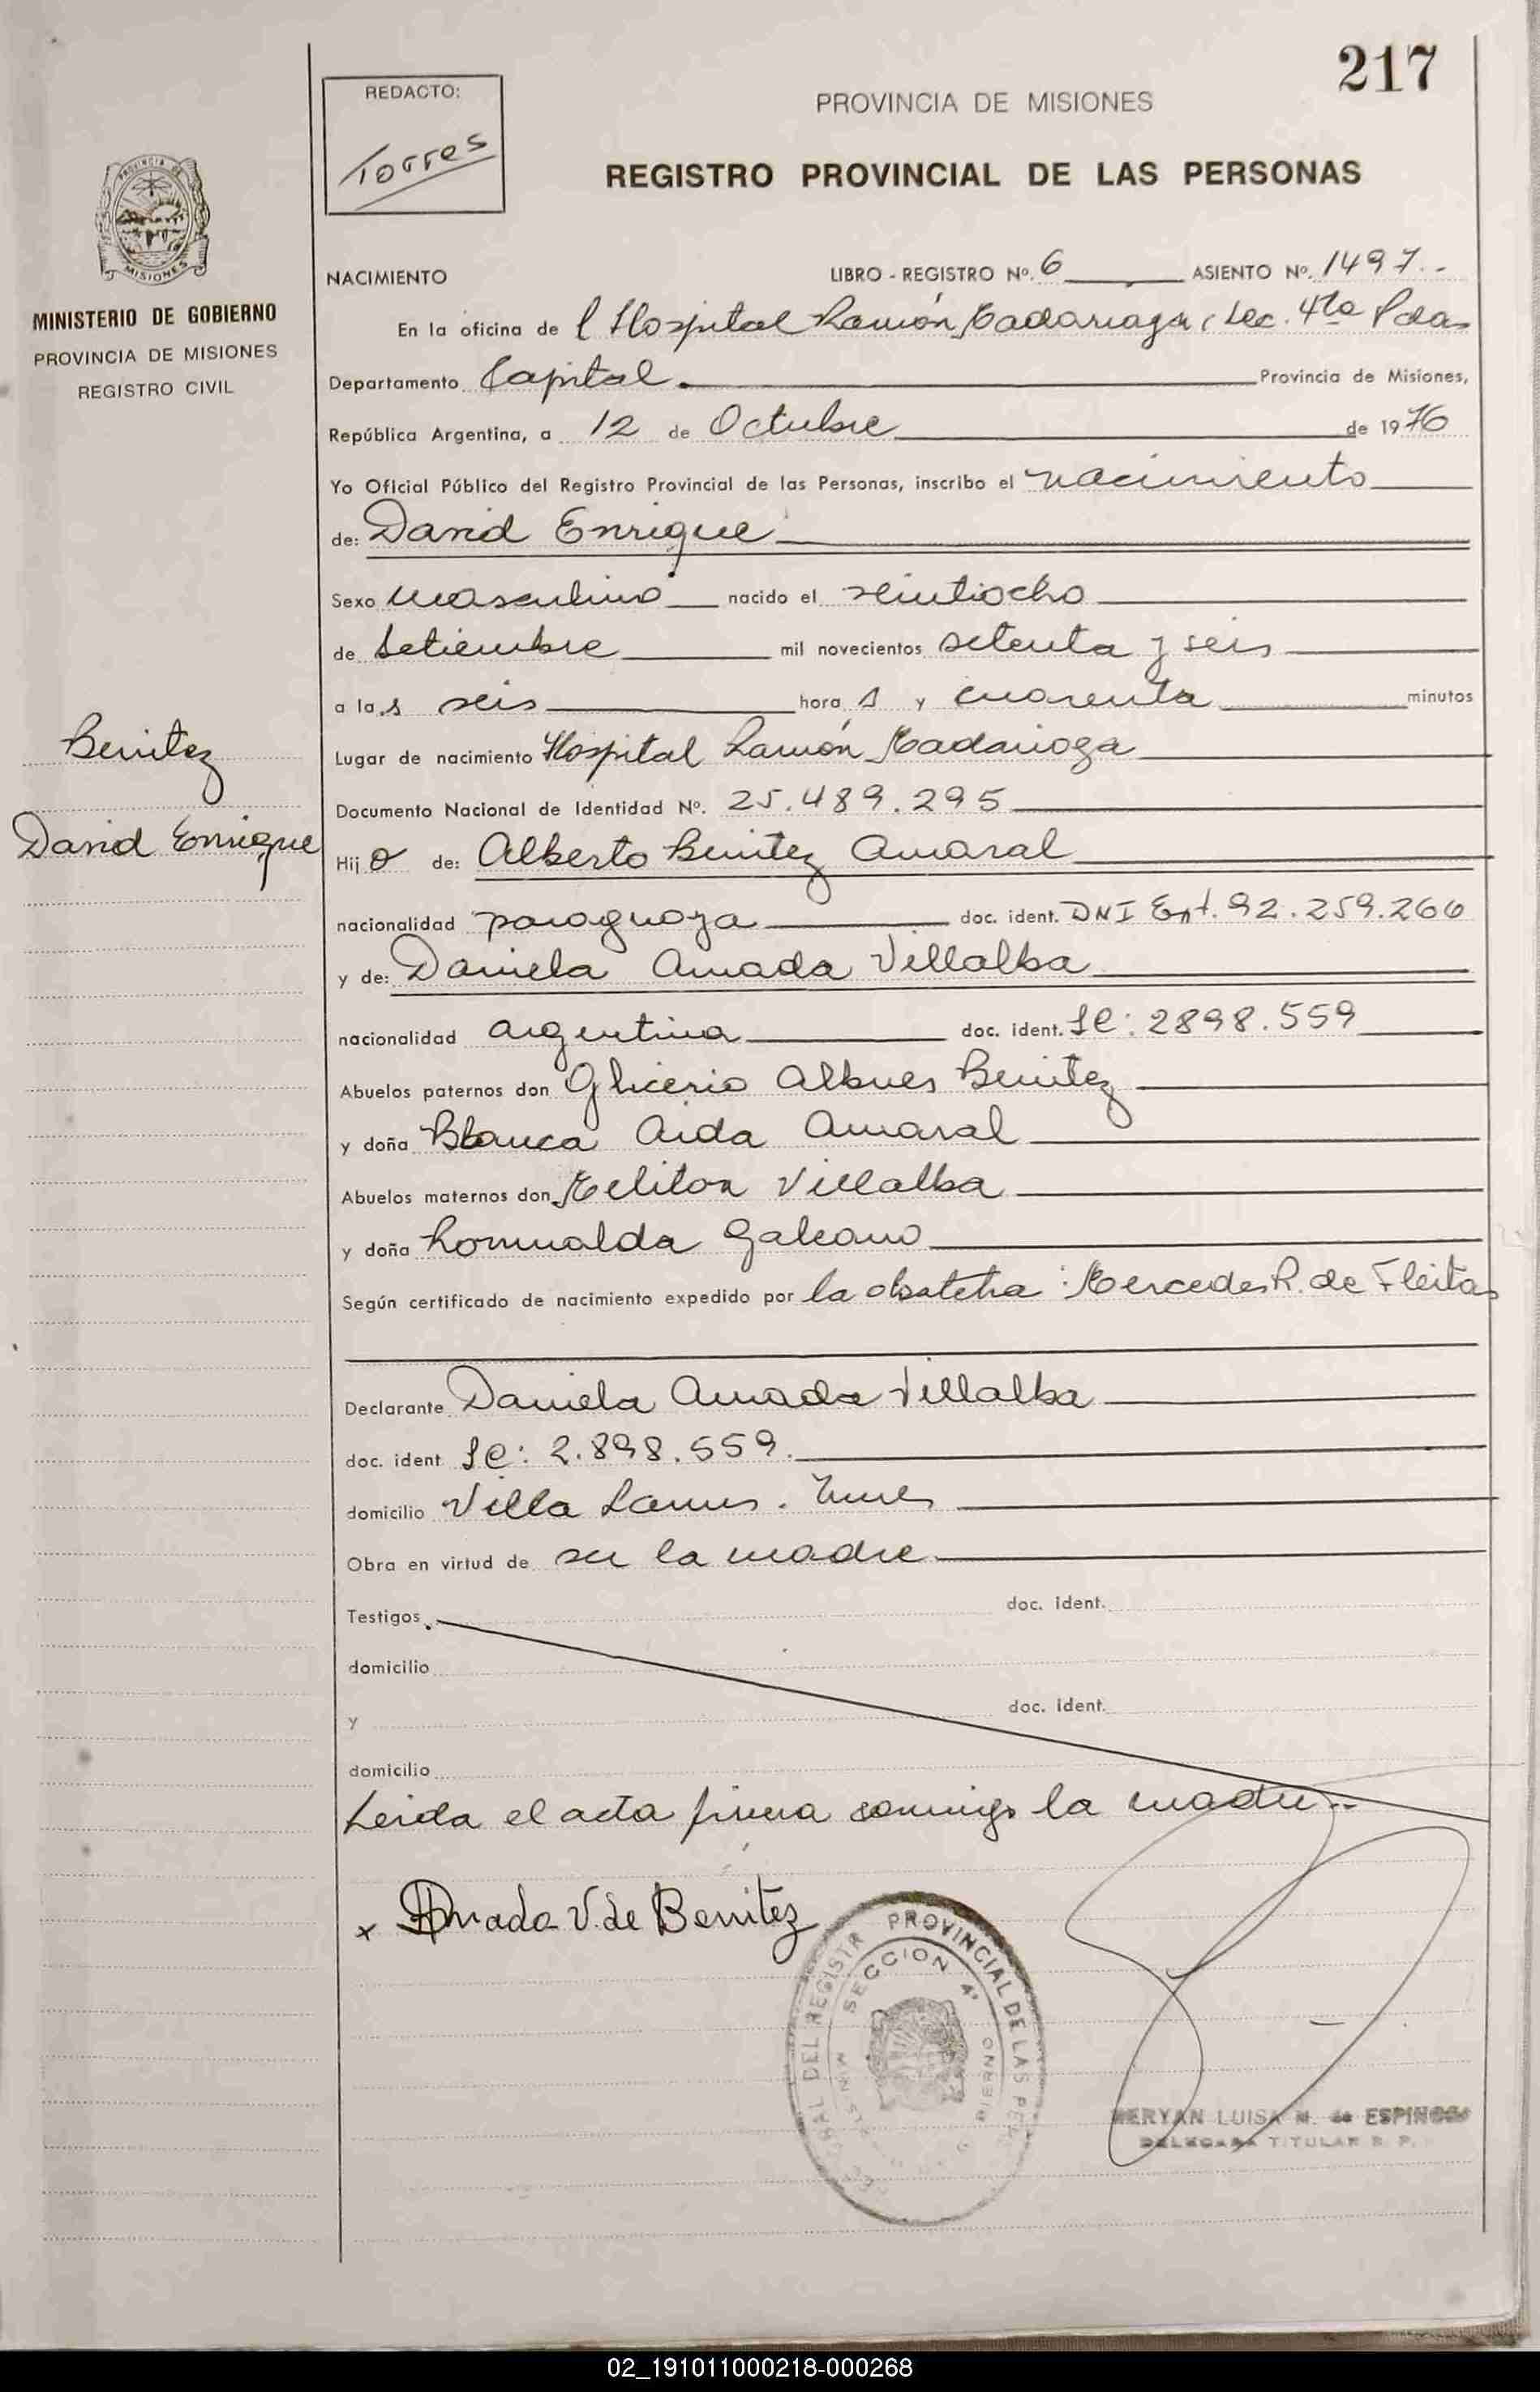 217
REDACTO:
Torres
PROVINCIA DE MISIONES
REGISTRO PROVINCIAL DE LAS PERSONAS
PROVINCIA DE
MISIONES
MINISTERIO DE GOBIERNO
PROVINCIA DE MISIONES
REGISTRO CIVIL
NACIMIENTO LIBRO - REGISTRO Nº. 6 ASIENTO Nº. 1497.-
En la oficina de l Hospital Ramón Madariaga, Sec. 4ta Pdas
Departamento Capital. Provincia de Misiones,
República Argentina, a 12 de Octubre de 1976
Yo Oficial Público del Registro Provincial de las Personas, inscribo el nacimiento
de: David Enrique
Sexo masculino nacido el veintiocho
de Setiembre mil novecientos setenta y seis
a la s seis hora s y cuarenta minutos
Lugar de nacimiento Hospital Ramón Madariaga
Documento Nacional de Identidad Nº. 25.489.295
Benitez
David Enrique
Hij o de: Alberto Benitez Amaral
nacionalidad paraguaya doc. ident. DNI Ext. 92.259.266
y de: Daniela Amada Villalba
nacionalidad argentina doc. ident. LC: 2898.559
Abuelos paternos don Glicerio Albues Benitez
y doña Blanca Aida Amaral
Abuelos maternos don Meliton Villalba
y doña Romualda Galeano
Según certificado de nacimiento expedido por la obstetra: Mercedes R. de Fleitas
Declarante Daniela Amada Villalba
doc. ident LC: 2.898.559.
domicilio Villa Lanus.
Obra en virtud de ser la madre
Testigos doc. ident.
domicilio
y doc. ident.
domicilio
Leida el acta firma conmigo la madre.-
x Amada V. de Benitez
PROVINCIAL DE LAS
DEL REGISTR
SECCION 4ª
MERYAN LUISA M. de ESPINOSA
DELEGADA TITULAR R. P.
02_191011000218-000268